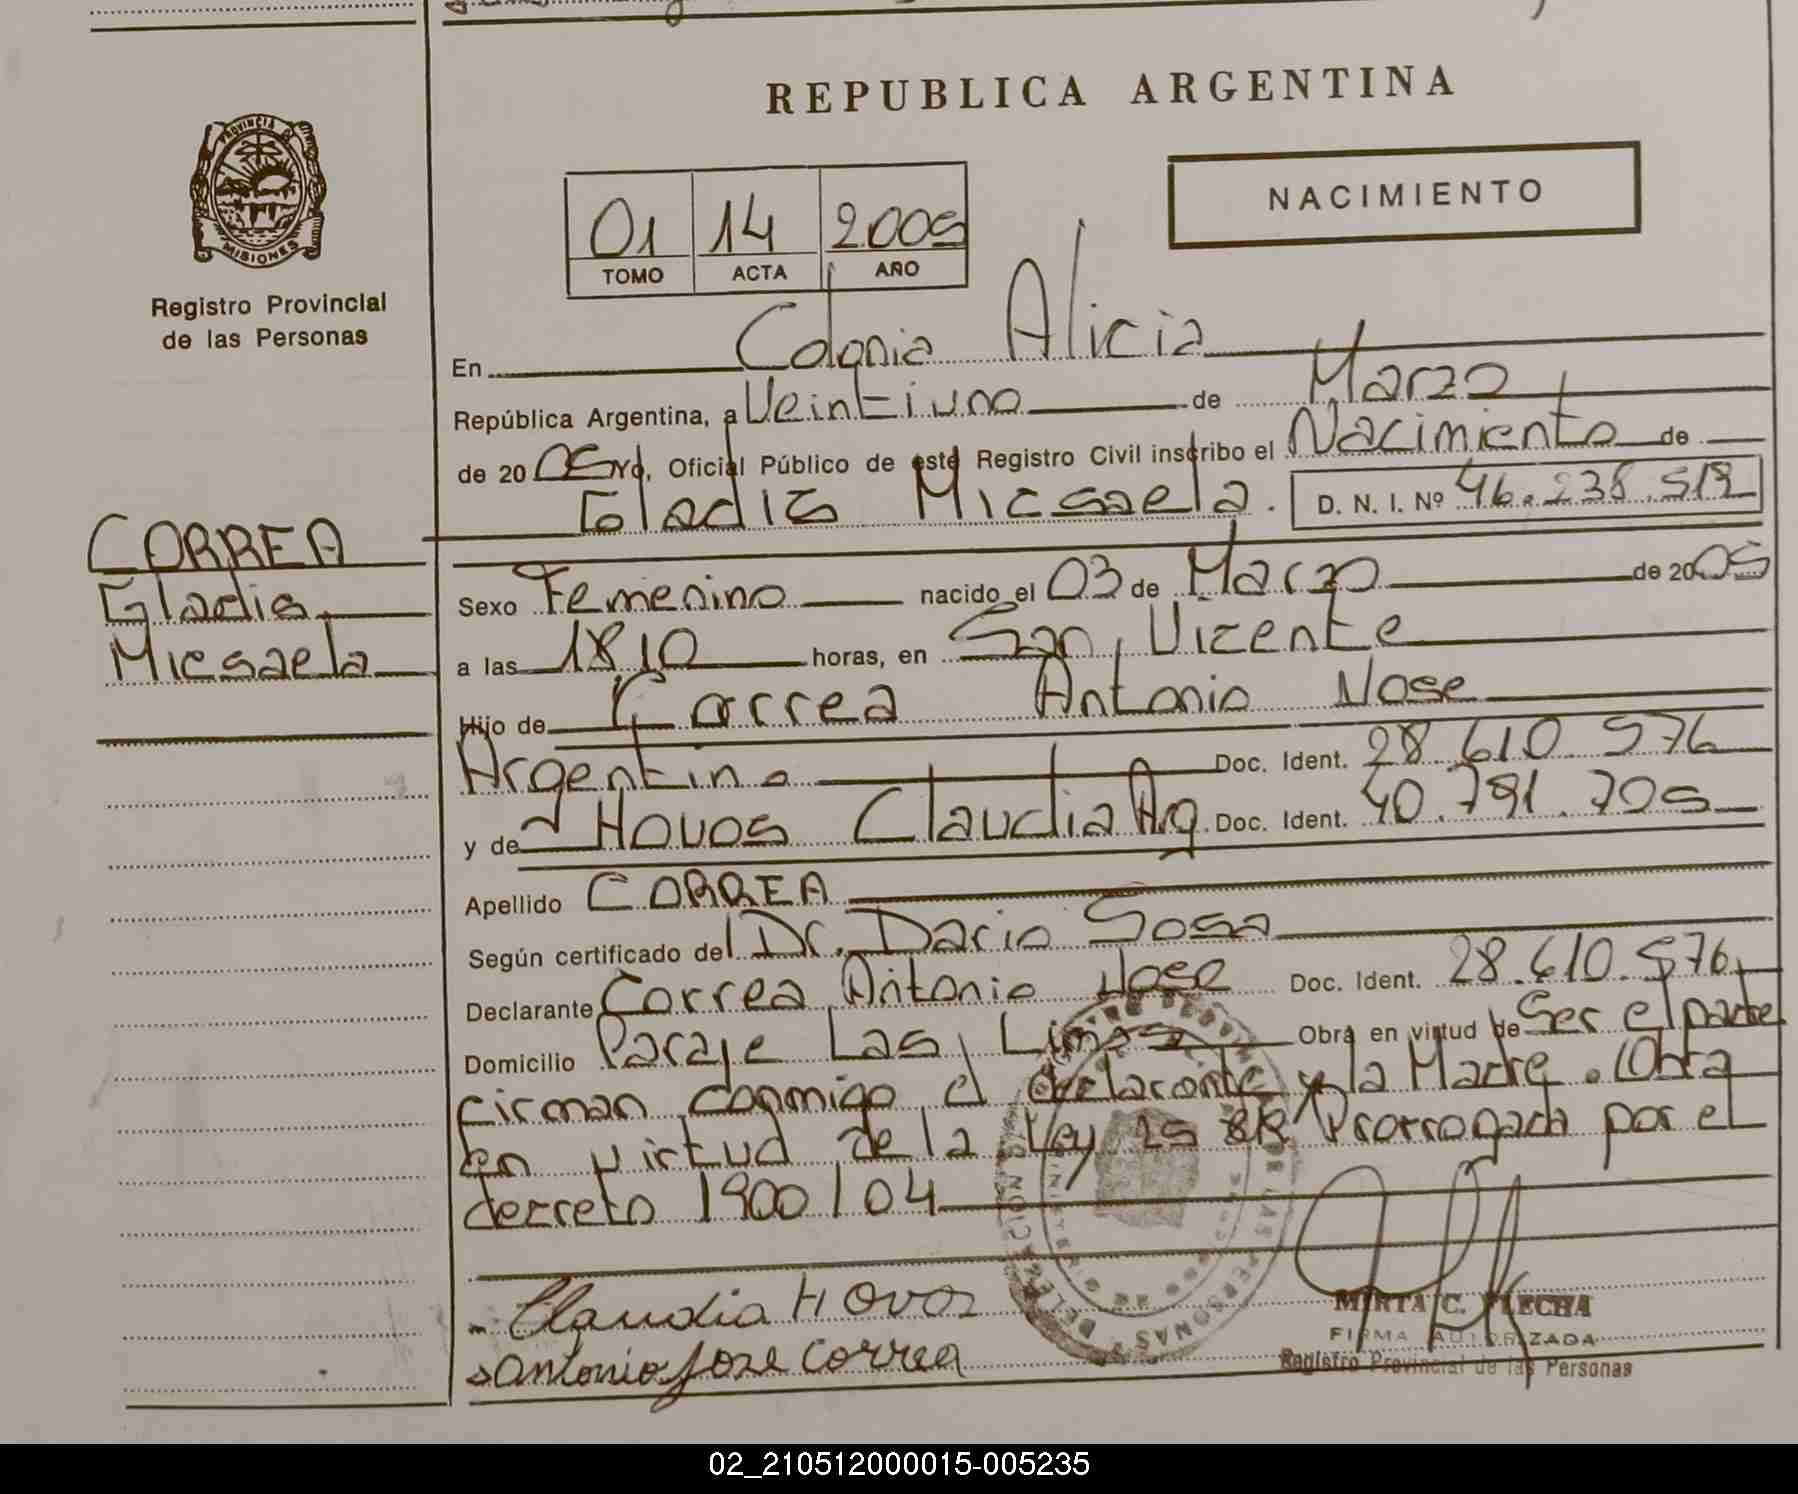 REPUBLICA ARGENTINA
PROVINCIA DE
MISIONES
Registro Provincial
de las Personas
NACIMIENTO
01 14 2005
TOMO ACTA AÑO
En Colonia Alicia
República Argentina, a Veintiuno de Marzo
de 2005 Yo, Oficial Público de este Registro Civil inscribo el Nacimiento de
Gladis Micsaela. D. N. I. Nº 46.238.519
CORREA
Gladis
Micsaela
Sexo Femenino nacido el 03 de Marzo de 2005
a las 18,10 horas, en San Vicente
Hijo de Correa Antonio Jose
Argentino Doc. Ident. 28.610.576
y de Hovos Claudia Arg. Doc. Ident. 40.791.705
Apellido CORREA
Según certificado del Dr. Dario Sosa
Declarante Correa Antonio Jose Doc. Ident. 28.610.576
Domicilio Paraje Las Limas Obra en virtud de Ser el padre
Firman conmigo el declarante y la Madre. Obra
en virtud de la Ley 25 Prorrogada por el
decreto 1900/04
Claudia Hovos
Antonio Jose Correa
MIRTA C. FLECHA
FIRMA AUTORIZADA
Registro Provincial de las Personas
02_210512000015-005235